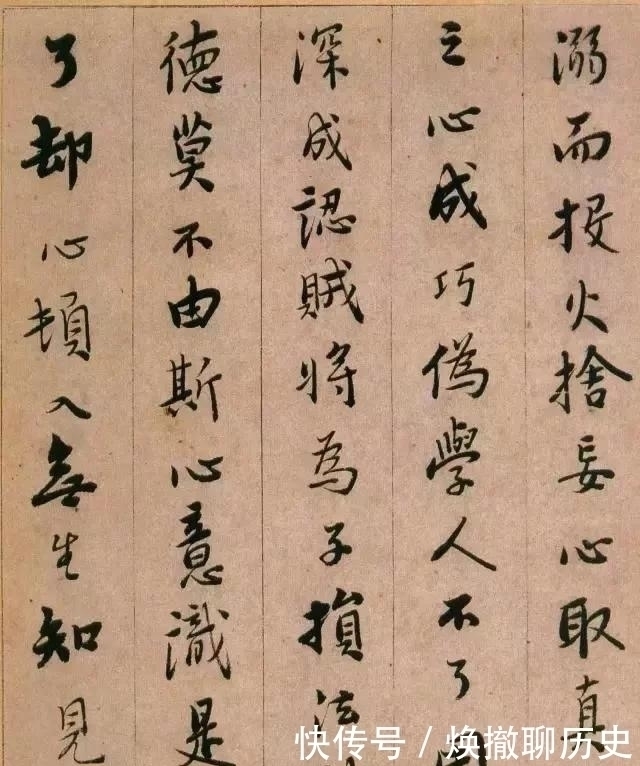 溺而投火捨妄心取真
之心成巧偽學人不了
深成認賊將為子損法
德莫不由斯心意識是
了却心頓入無生知見
快传号 / 焕撤聊历史